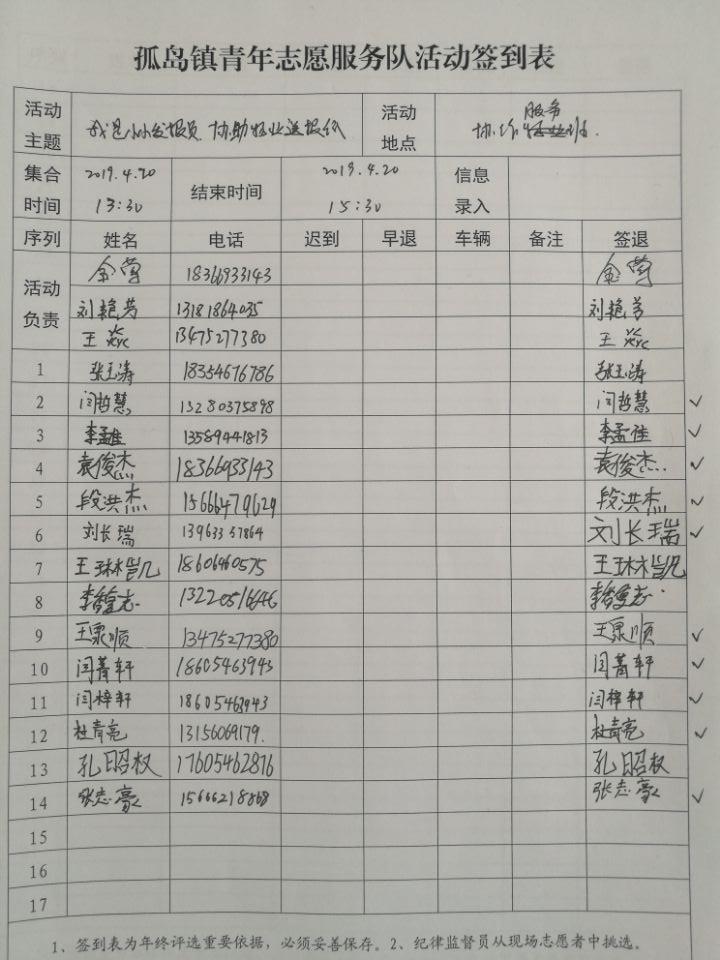 孤岛镇青年志愿服务队活动签到表
活动主题 我是小小发报员 协助物业送报纸 活动地点 服务
集合时间 2019.4.20 13:30 结束时间 2019.4.20 15:30 信息录入
序列 姓名 电话 迟到 早退 车辆 备注 签退
活动负责
金莺 18366933143 金莺
刘艳芳 13181864035 刘艳芳
王 13475277380 王
1 张玉涛 18354676786 张玉涛
2 闫哲慧 13280375898 闫哲慧 ✓
3 李孟佳 13589441813 李孟佳 ✓
4 袁俊杰 18366933143 袁俊杰 ✓
5 段洪杰 15666479629 段洪杰 ✓
6 刘长瑞 13963357864 刘长瑞 ✓
7 王琳凯 18606460575 王琳凯
8 李志 13220516646 李志
9 王顺 13475277380 王顺 ✓
10 闫菁轩 18605463943 闫菁轩 ✓
11 闫梓轩 18605463943 闫梓轩 ✓
12 杜青亮 13156069179. 杜青亮 ✓
13 孔昭权 17605462816 孔昭权
14 张志豪 15666218868 张志豪 ✓
15
16
17
1、签到表为年终评选重要依据，必须妥善保存。2、纪律监督员从现场志愿者中挑选。